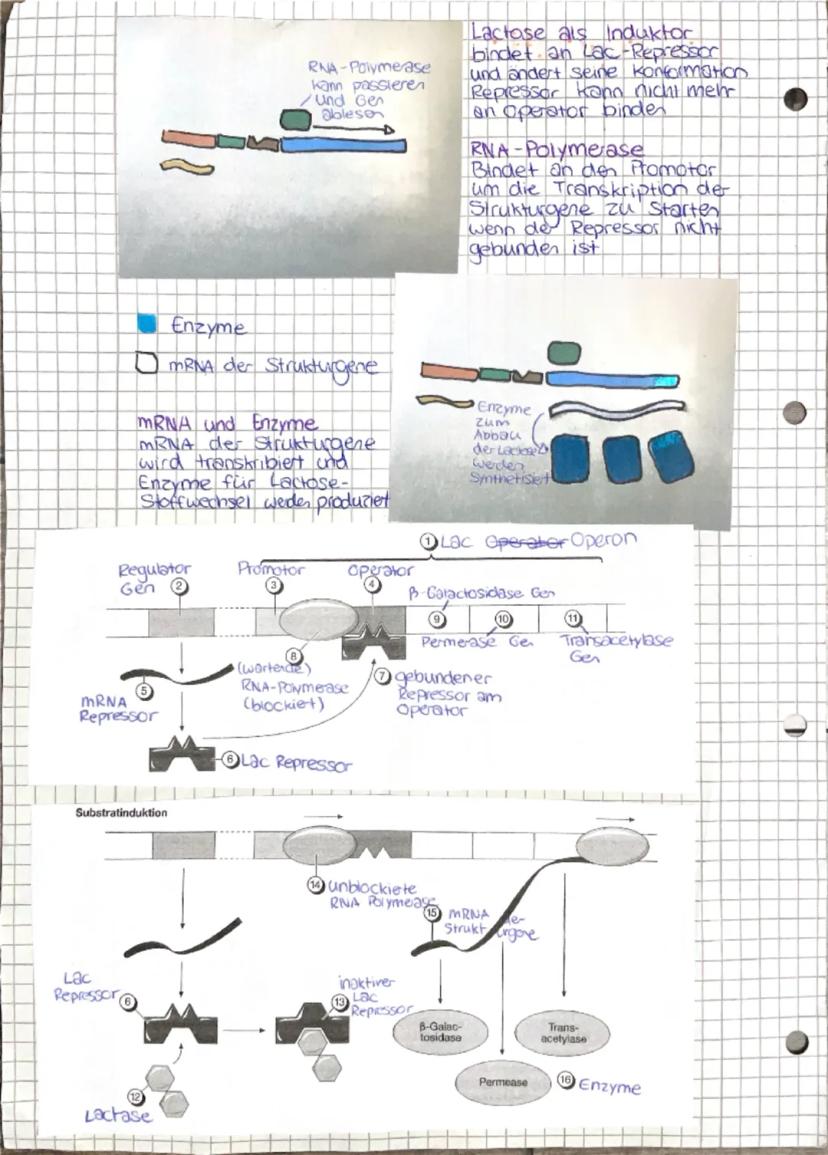 RNA-Polymerase
kann passieren
und Gen
ablesen
Lactose als Induktor
bindet an Lac-Repressor
und ändert seine Konformation
Repressor kann nicht mehr
an Operator binden
RNA-Polymerase
Bindet an den Promotor
um die Transkription der
Strukturgene zu Starten
wenn der Repressor nicht
gebunden ist
Enzyme
mRNA der Strukturgene
mRNA und Enzyme
mRNA der Strukturgene
wird transkribiert und
Enzyme für Lactose-
Stoffwechsel werden produziert
Enzyme
zum
Abbau
der Lactose
werden
Synthetisiert
1 Lac Operator Operon
Regulator
Gen 2
Promotor
3
Operator
4
β-Galactosidase Gen
9
10
11
Permerase Gen
Transacetylase
Gen
8
(wartende)
RNA-Polymerase
(blockiert)
7 gebundener
Repressor am
Operator
5
mRNA
Repressor
6 Lac Repressor
Substratinduktion
14 unblockiete
RNA Polymerase
15 mRNA der-
Strukt urgene
Lac
Repressor 6
inaktiver
13 Lac
Repressor
β-Galac-
tosidase
Trans-
acetylase
Permease
16 Enzyme
12
Lactase